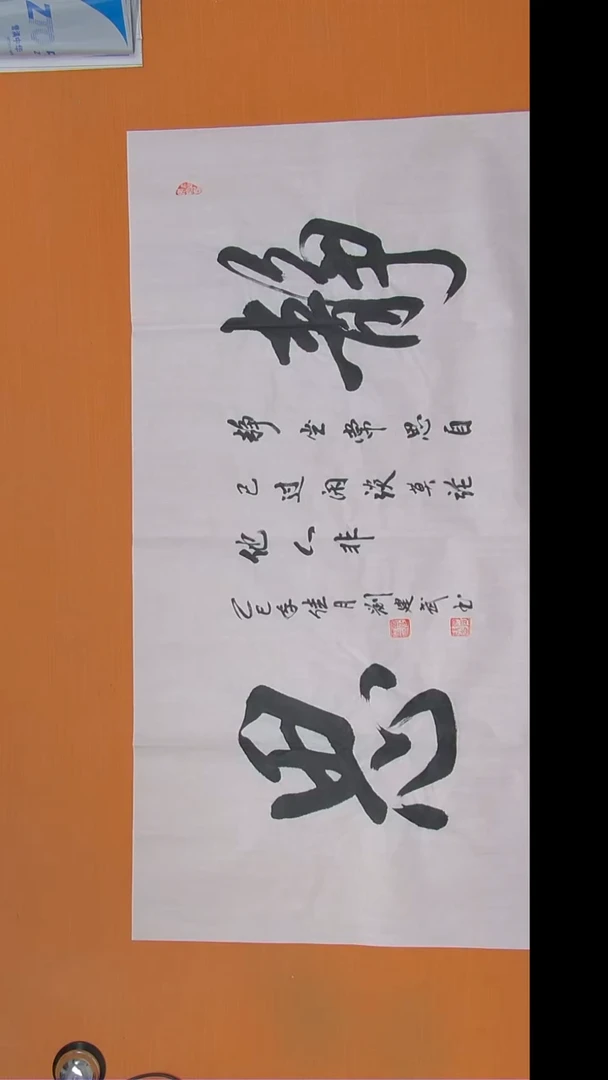 静
静坐常思自
己过闲谈莫论
他人非
乙巳年佳月刘建武书
思
ZTO